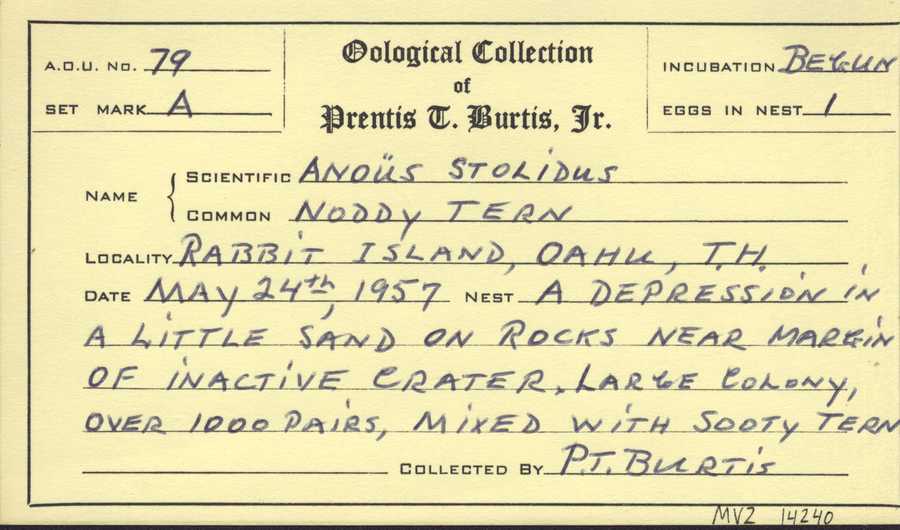 A.O.U. No. 79
Oological Collection
INCUBATION BEGUN
SET MARK A
of
EGGS IN NEST 1
Prentis T. Burtis, Jr.
NAME
SCIENTIFIC ANOÜS STOLIDUS
COMMON NODDY TERN
LOCALITY RABBIT ISLAND, OAHU, T.H.
DATE MAY 24th, 1957 NEST A DEPRESSION IN
A LITTLE SAND ON ROCKS NEAR MARGIN
OF INACTIVE CRATER. LARGE COLONY,
OVER 1000 PAIRS, MIXED WITH SOOTY TERN
COLLECTED BY P.T. BURTIS
MVZ 14240